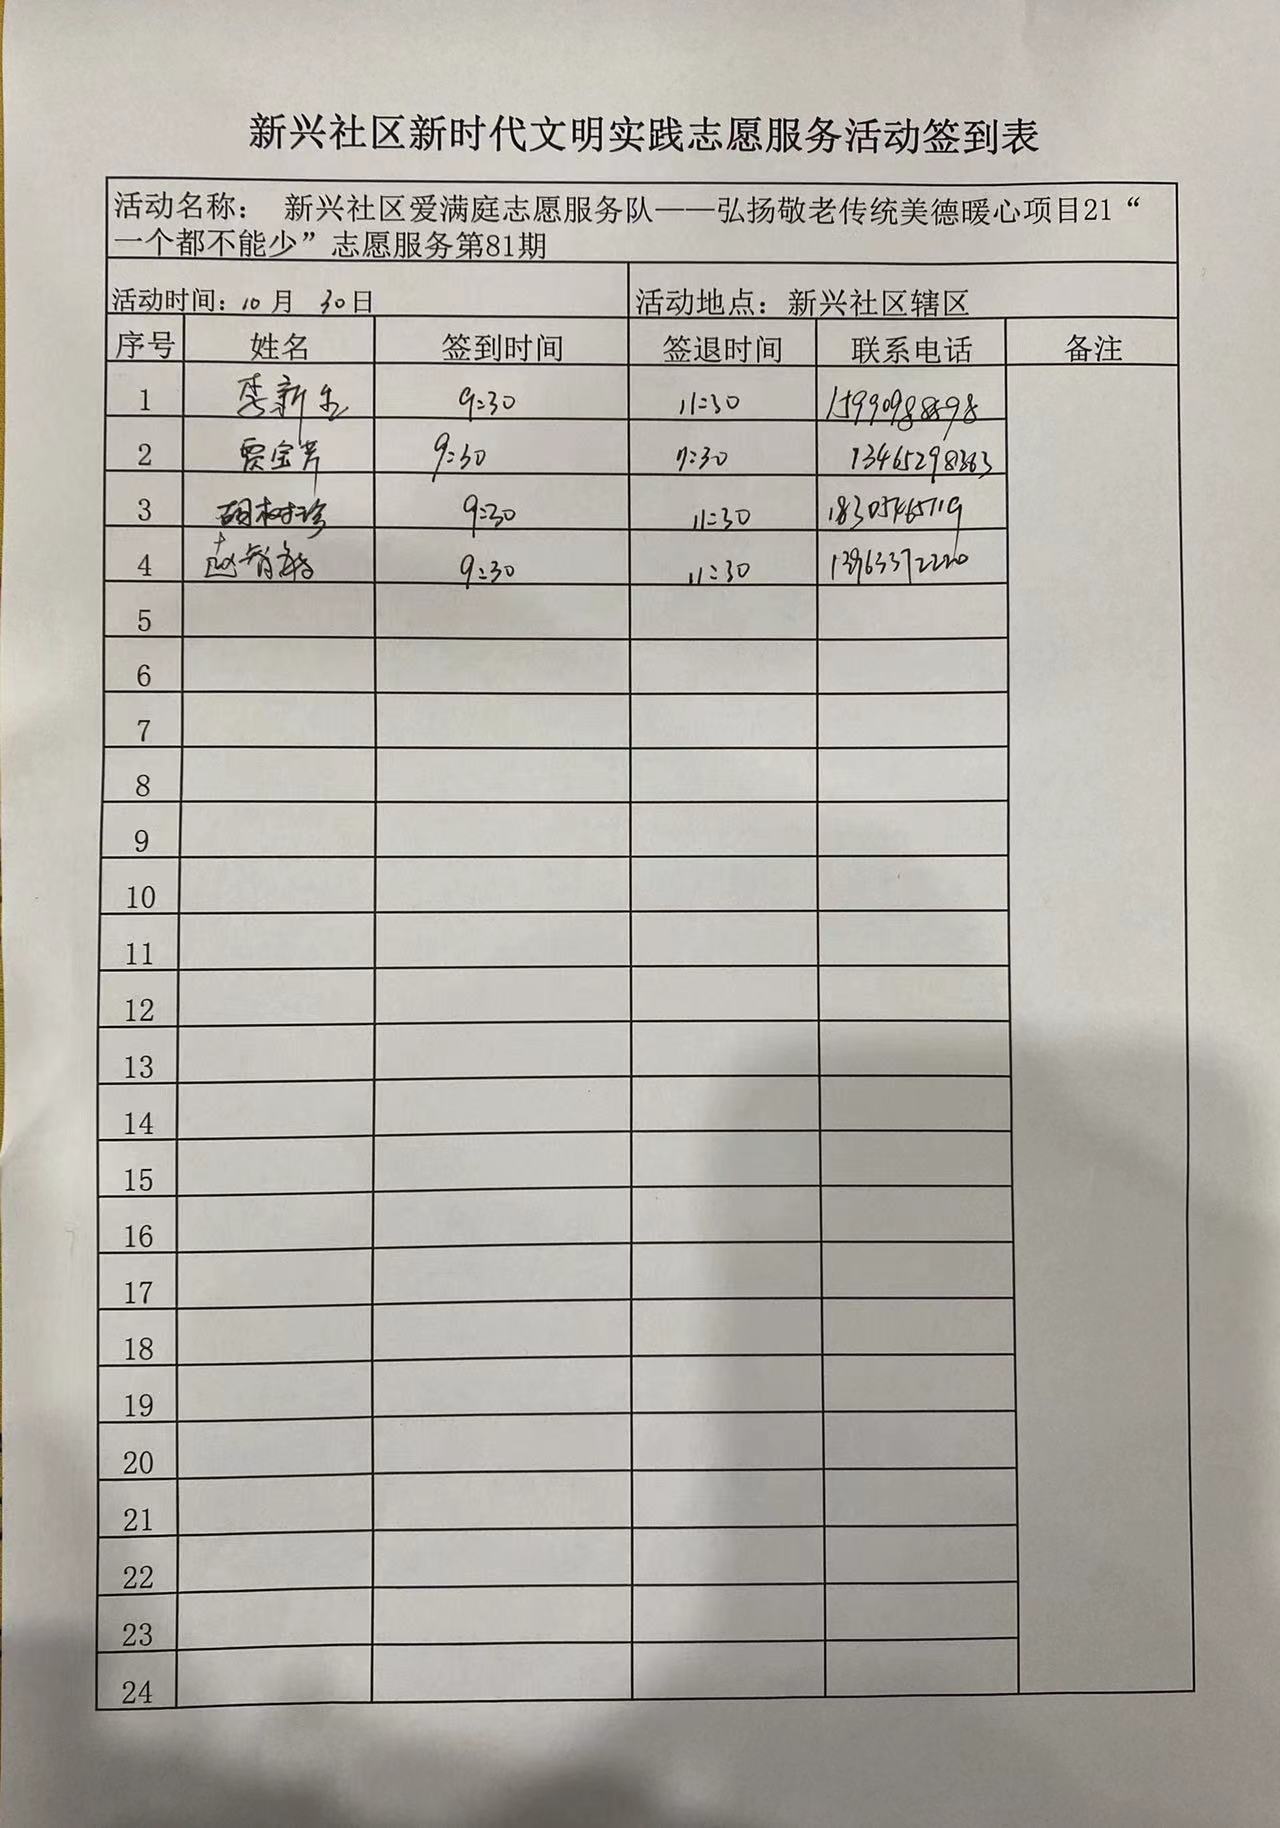 新兴社区新时代文明实践志愿服务活动签到表
活动名称： 新兴社区爱满庭志愿服务队——弘扬敬老传统美德暖心项目21“
一个都不能少”志愿服务第81期
活动时间：10月 30日 活动地点：新兴社区辖区
序号 姓名 签到时间 签退时间 联系电话 备注
1 9:30 11:30
2 贾宝芹 9:30 11:30 13465298363
3 胡树珍 9:30 11:30 18305465719
4 9:30 11:30 13963372220
5
6
7
8
9
10
11
12
13
14
15
16
17
18
19
20
21
22
23
24